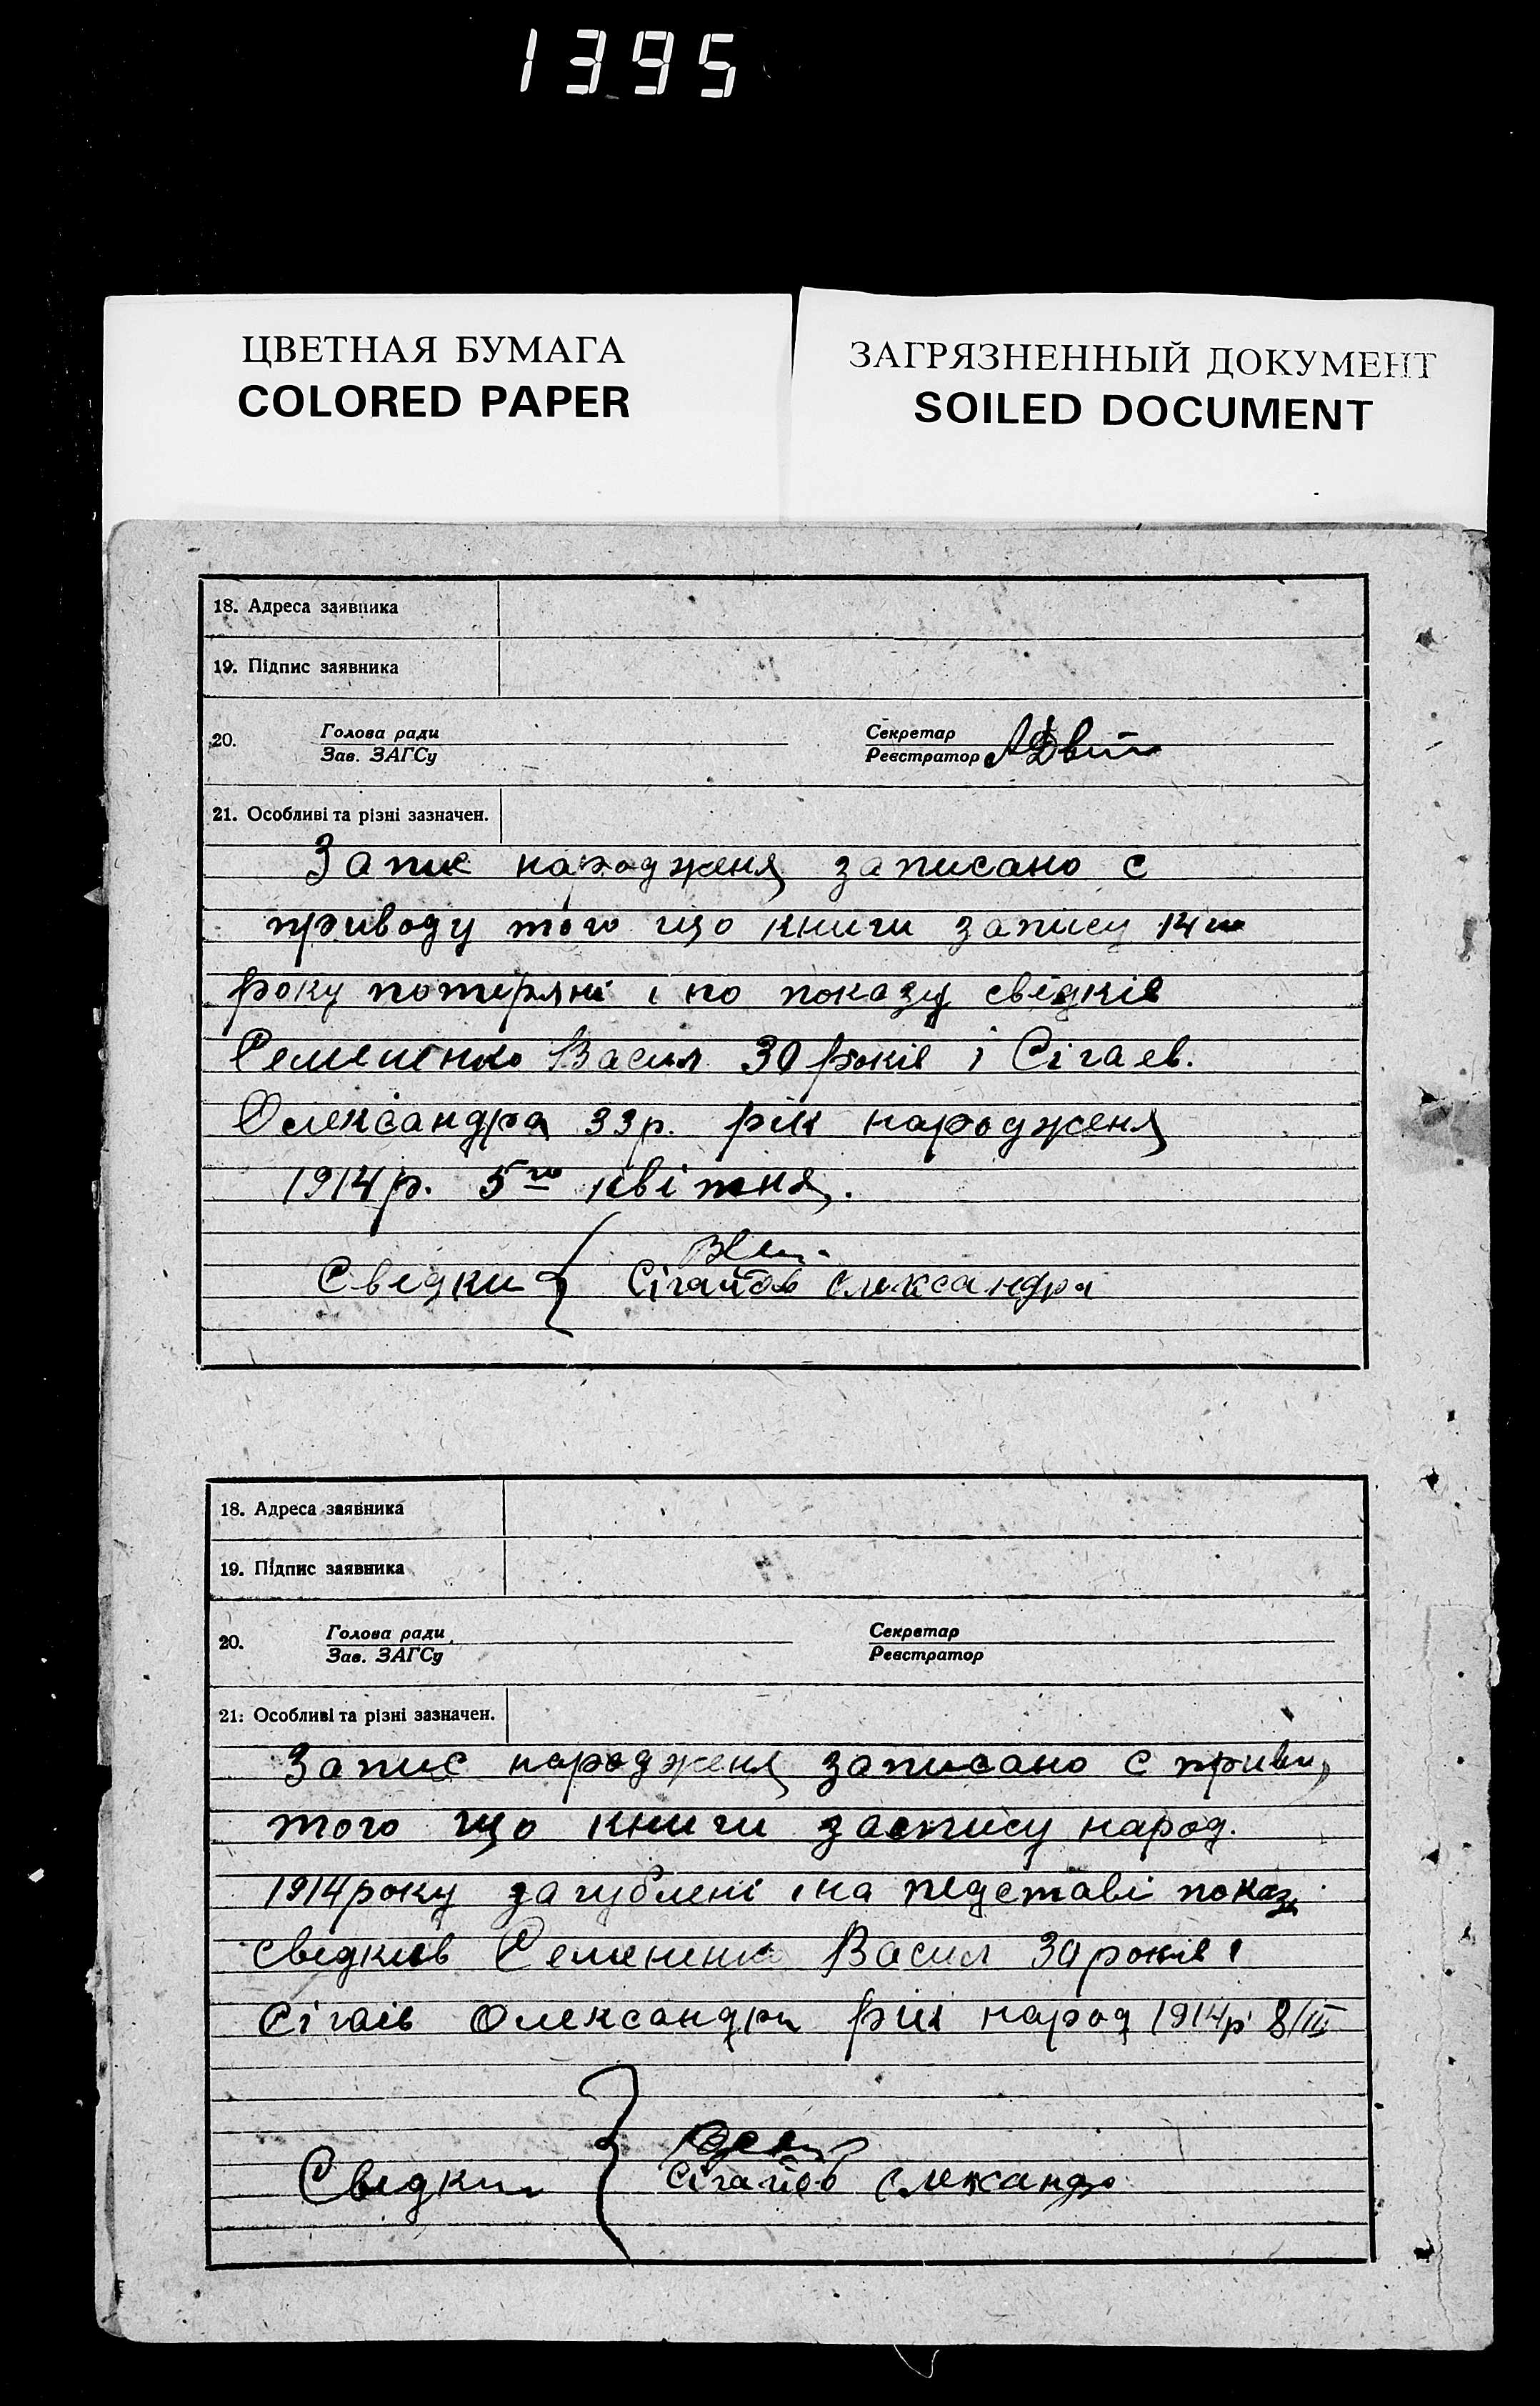 1395
ЦВЕТНАЯ БУМАГА
COLORED PAPER
ЗАГРЯЗНЕННЫЙ ДОКУМЕНТ
SOILED DOCUMENT
18. Адреса заявника
19. Підпис заявника
20. Голова ради
Зав. ЗАГСу
Секретар
Реєстратор
21. Особливі та різні зазначен.
Запис народженя записано с
приводу того що книги запису 14го
року потеряні і по показу свідків
Семененко Васил 30 років і Сігаєв.
Олександра 33р. рік народженя
1914р. 5го квітня.
Свідки Сігайов Олександра
18. Адреса заявника
19. Підпис заявника
20. Голова ради
Зав. ЗАГСу
Секретар
Реєстратор
21. Особливі та різні зазначен.
Запис народженя записано с
того що книги запису народ.
1914 року загублені і на підставі показ
свідків Семененко Васил 30 років і
Сігаів Олександра рік народ 1914р 8/III
Свідки Сігайов